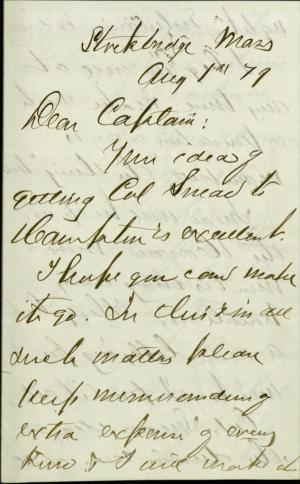 Stockbridge Mass
Aug 1st 79
Dear Captain:
Your idea of
getting Col Snead to
Hampton is excellent.
I hope you can make
it go. In this & in all
such matters please
keep memorandum of
extra expense of every
kind & I will make it